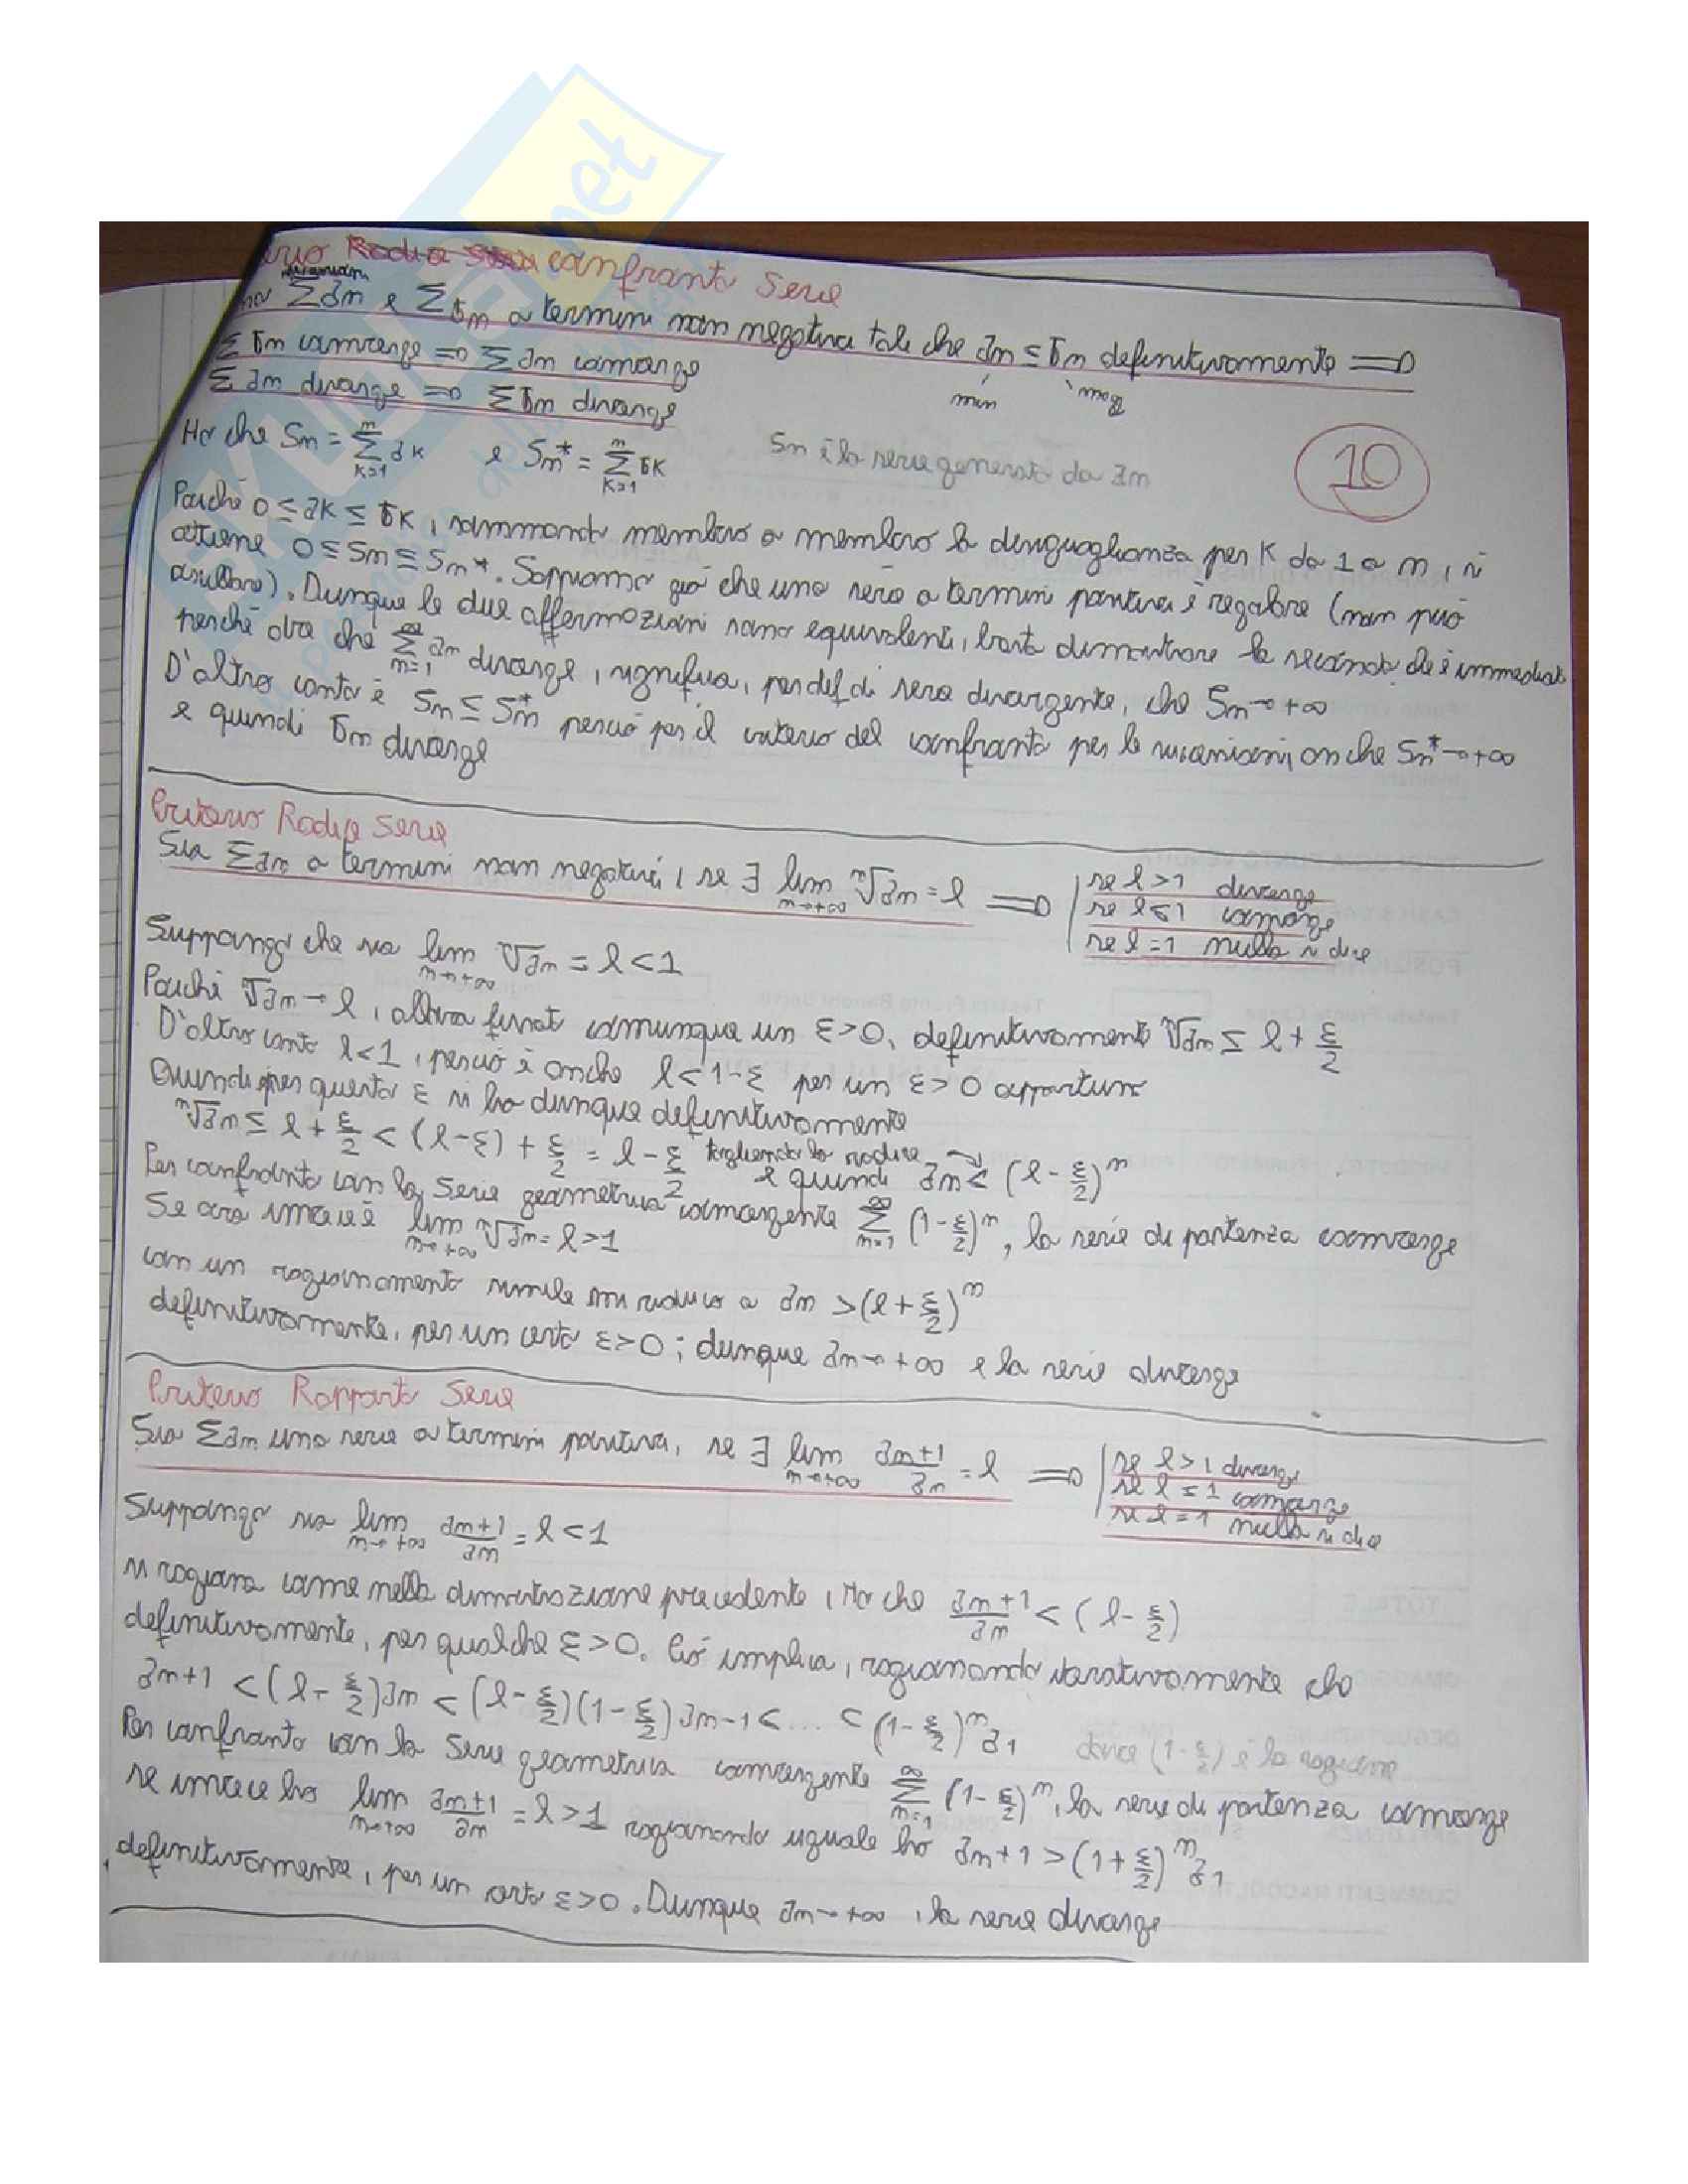 Radice Serie confronto Serie
minorante
Σan e Σbn a termini non negativi tale che an ≤ bn definitivamente =>
Σbn converge => Σan converge
Σan diverge => Σbn diverge
min magg
Ho che Sn = Σ(k=1, n) ak e Sn* = Σ(k=1, n) bk
Sn è la serie generata da an
10
Poiché 0 ≤ ak ≤ bk, sommando membro a membro la disuguaglianza per K da 1 a n, si
ottiene 0 ≤ Sn ≤ Sn*. Sappiamo già che una serie a termini positivi è regolare (non può
oscillare). Dunque le due affermazioni sono equivalenti, basta dimostrare la seconda che è immediat
perché dire che Σ(n=1, ∞) an diverge, significa, per def di serie divergente, che Sn → +∞
D'altro canto è Sn ≤ Sn* perciò per il criterio del confronto per le successioni anche Sn* → +∞
e quindi bn diverge
Criterio Radice Serie
Sia Σan a termini non negativi, se ∃ lim n→+∞ ⁿ√an = l =>
se l > 1 diverge
se l < 1 converge
se l = 1 nulla si dice
Suppongo che sia lim n→+∞ ⁿ√an = l < 1
Poiché ⁿ√an → l, allora fissato comunque un ε > 0, definitivamente ⁿ√an ≤ l + ε/2
D'altro canto l < 1, perciò è anche l < 1 - ε per un ε > 0 opportuno
Quindi per questo ε si ha dunque definitivamente
ⁿ√an ≤ l + ε/2 < (l - ε) + ε/2 = l - ε/2 togliendo la radice e quindi an < (l - ε/2)^n
Per confronto con la serie geometrica convergente Σ(n=1, ∞) (1 - ε/2)^n, la serie di partenza converge
Se ora invece è lim n→+∞ ⁿ√an = l > 1
con un ragionamento simile mi riduco a an > (l + ε/2)^n
definitivamente, per un certo ε > 0; dunque an → +∞ e la serie diverge
Criterio Rapporto Serie
Sia Σan una serie a termini positivi, se ∃ lim n→+∞ an+1/an = l =>
se l > 1 diverge
se l < 1 converge
se l = 1 nulla si dice
Suppongo sia lim n→+∞ an+1/an = l < 1
si ragiona come nella dimostrazione precedente, Ho che an+1/an < (l - ε/2)
definitivamente, per qualche ε > 0. Ciò implica, ragionando iterativamente che
an+1 < (l - ε/2)an < (l - ε/2)(1 - ε/2)an-1 < ... < (1 - ε/2)^n a1
dove (1 - ε/2) è la ragione
Per confronto con la Serie geometrica convergente Σ(n=1, ∞) (1 - ε/2)^n, la serie di partenza converge
se invece ho lim n→+∞ an+1/an = l > 1 ragionando uguale ho an+1 > (1 + ε/2)^n a1
definitivamente, per un certo ε > 0. Dunque an → +∞, la serie diverge